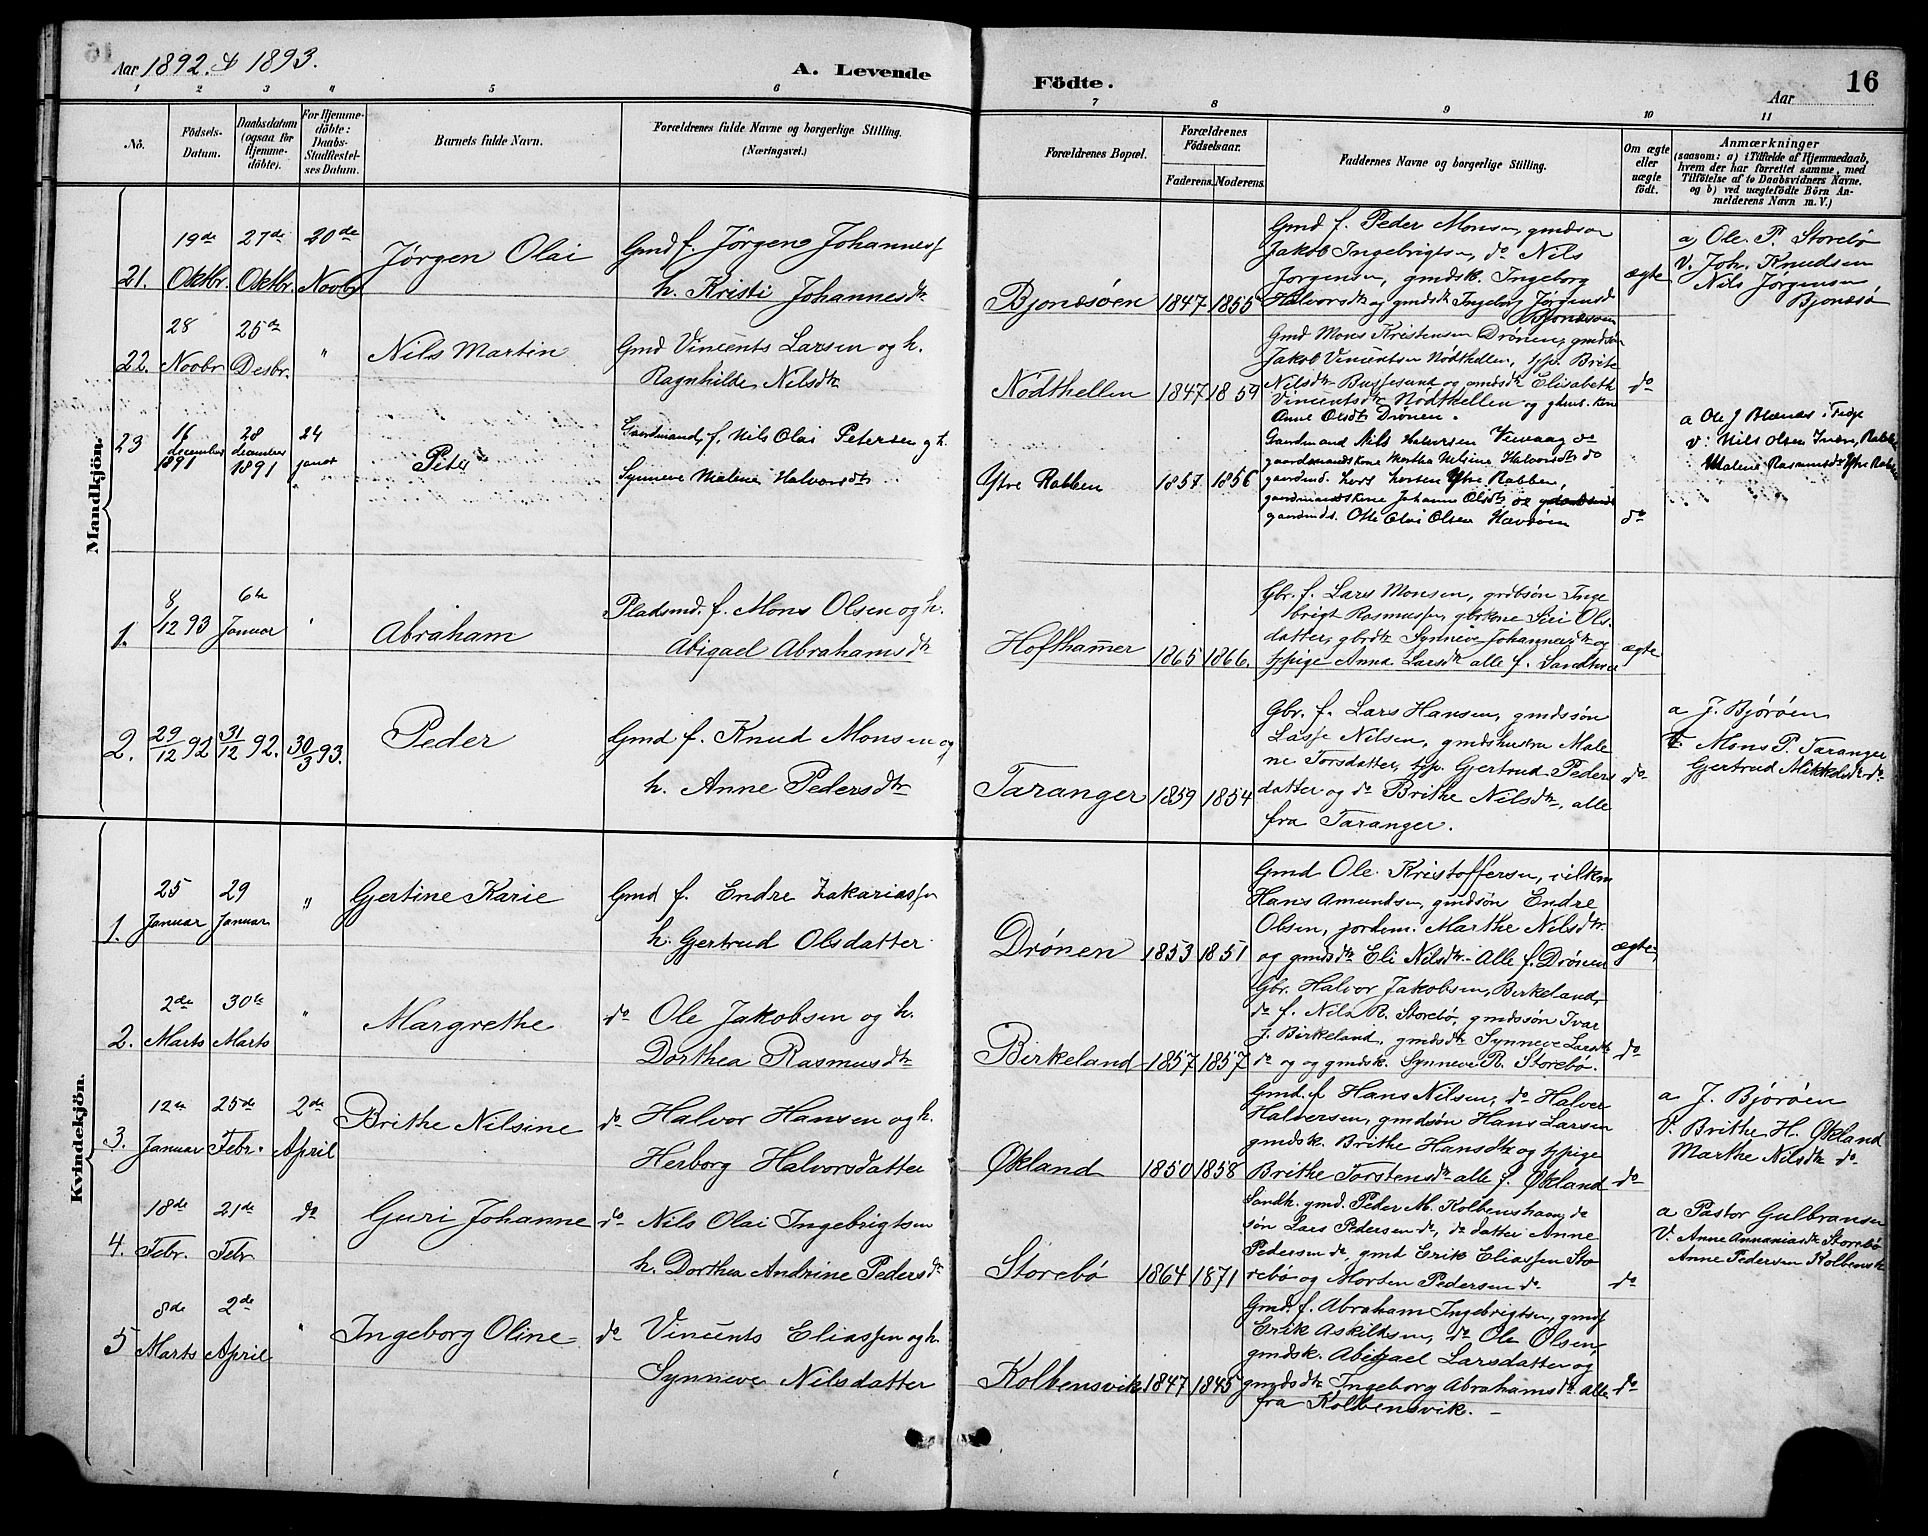 Aar 1892. & 1893.
A. Levende
Födte.
Aar
16
1 2 3 4 5 6 7 8 9 10 11
No.
Födsels-
Datum.
Daabsdatum
(ogsaa for
Hjemme-
döbte).
For Hjemme-
döbte:
Daabs-
Stadfæstel-
ses Datum.
Barnets fulde Navn.
Forældrenes fulde Navne og borgerlige Stilling.
(Næringsvei.)
Forældrenes Bopæl.
Forældrenes
Födselsaar.
Faderens. Moderens.
Faddernes Navne og borgerlige Stilling.
Om ægte
eller
uægte
födt.
Anmærkninger
(saasom: a) i Tilfælde af Hjemmedaab,
hvem der har forrettet samme, med
Tilföielse af to Daabsvidners Navne.
og b) ved uægtefödte Börn An-
melderens Navn m. V.)
Mandkjön.
21.
19de Oktbr.
27de Oktbr.
20de Novbr
Jørgen Olai
Gmd f. Jørgen Johannesf
h. Kristi Johannesdtr
Bjonæsöen
1847 1855
Gmd f. Peder Monsen, gmdsøn
Jakob Ingebrigtsen, do Nils
Jørgensen, gmdsk. Ingeborg
Halvorsdtr og gmdsdtr Ingeborg Jørgensd
Bjonæsøen
ægte
a, Ole P. Storebö
V. Joh. Knudsen
Nils Jørgensen
Bjonæsö
22.
28 Novbr
25de Desbr.
"
Nils Martin
Gmd Vincents Larsen og h.
Ragnhilde Nilsdtr
Nödthellen
1847 1859
Gmd Mons Kristensen Drönen, gmdsøn
Jakob Vincentsen Nödthellen, tjp. Brite
Nilsdtr Buskesund og gmdsdtr Elisabeth
Vincentsdtr Nödthellen og
Anne Olsdtr Drönen.
do
23
16 december 1891
28 december 1891
24 januar
Peter
Gaardmand, f. Nils Olai Petersen og h.
Synneve Malene Halvorsdtr
Ytre Rabben
1857 1856
Gaardmand Nils Halvorsen Vinvaag do
gaardmandskone Marthe Helsine Halvorsdtr do
gaardmd. Lars Larsen Ytre Rabben,
gaardmandskone Johanne Olsdtr og
gaardmds. Otte Olai Olsen Hævröen
do
a Ole J Blænes i Fitje
v: Nils Olsen Indre Rabben
Malene Rasmusdtr Ytre Rabben
1.
8/12 93
6te Januar
Abraham
Pladsmd. f. Mons Olsen og h.
Abigael Abrahamsdtr
Hofthammer
1865 1866.
Gbr. f. Lars Monsen, grdbsøn Inge
brigt Rasmussen, gbrkone Siri Ols-
datter, gbrdtr Synneve Johannesdtr og
tjpige Anna Larsdtr alle f.
ægte
2.
29/12 92
31/12 92.
30/3 93.
Peder
Gmd f. Knud Monsen og
h. Anne Pedersdtr
Taranger
1859 1854
Gbr. f. Lars Hansen, gmdssøn
Lasse Nilsen, gmdshustru Male
ne Torsdatter, tjp. Gjertrud Peders
datter og do Brithe Nilsdtr, alle
fra Taranger.
do
a J. Björöen
V. Mons P. Taranger
Gjertrud Mikkelsdtr do
Kvindekjön.
1.
25 Januar
29 Januar
"
Gjertine Karie
Gmd f. Endre Zakariassen
h. Gjertrud Olsdatter
Drönen
1853 1851
Gmd Ole Kristoffersen,
Hans Amundsen, gmdsøn Endre
Olsen, jordem. Marthe Nilsdtr.
og gmdsdtr Eli Nilsdtr. Alle f. Drönen
ægte
2.
2de Marts
30te Marts
"
Margrethe
do Ole Jakobsen og h.
Dorthea Rasmusdtr
Birkeland
1857 1857
Gbr. Halvor Jakobsen, Birkeland,
do f. Nils R. Storebø, gmdssøn Ivar
J. Birkeland, gmdsdtr Synneve Larsdtr
do og og gmdsk. Synneve R. Storebø.
do
3.
12te Januar
25de Febr.
2de April
Brithe Nilsine
do Halvor Hansen og h.
Herborg Halvorsdatter
Økland
1850 1858
Gmd. f Hans Nilsen, do Halvor
Halversen, gmdsøn Hans Larsen
gmdsk. Brithe Hansdtr og tjpige
Brithe Torstensdtr alle f. Økland
do
a J. Björöen
V. Brithe H. Økland
Marthe Nilsdtr do
4.
18de Febr.
21de Febr
do
Guri Johanne
do Nils Olai Ingebrigtsen
h. Dorthea Andrine Pedersdtr
Storebø
1864 1871
Sandh. gmd. Peder M. Kolbenshavn, do
søn Lars Pedersen do, do datter Anne
Pedersen do, gmd Erik Eliassen Sto
rebø og Morten Pedersen do
do
a Pastor Gulbransen
V. Anne Annaniasdtr Storebø
Anne Pedersen Kolbensk
5
8de Marts
2de April
"
Ingeborg Oline
do Vincents Eliassen og h.
Synneve Nilsdatter
Kolbensvik
1847 1845
Gmd. f. Abraham Ingebrigtsen, gmds
Erik Askildsen, do Ole Olsen,
gmdsk. Abigael Larsdatter og
gmdsdtr Ingeborg Abrahamsdtr. alle
fra Kolbensvik.
do